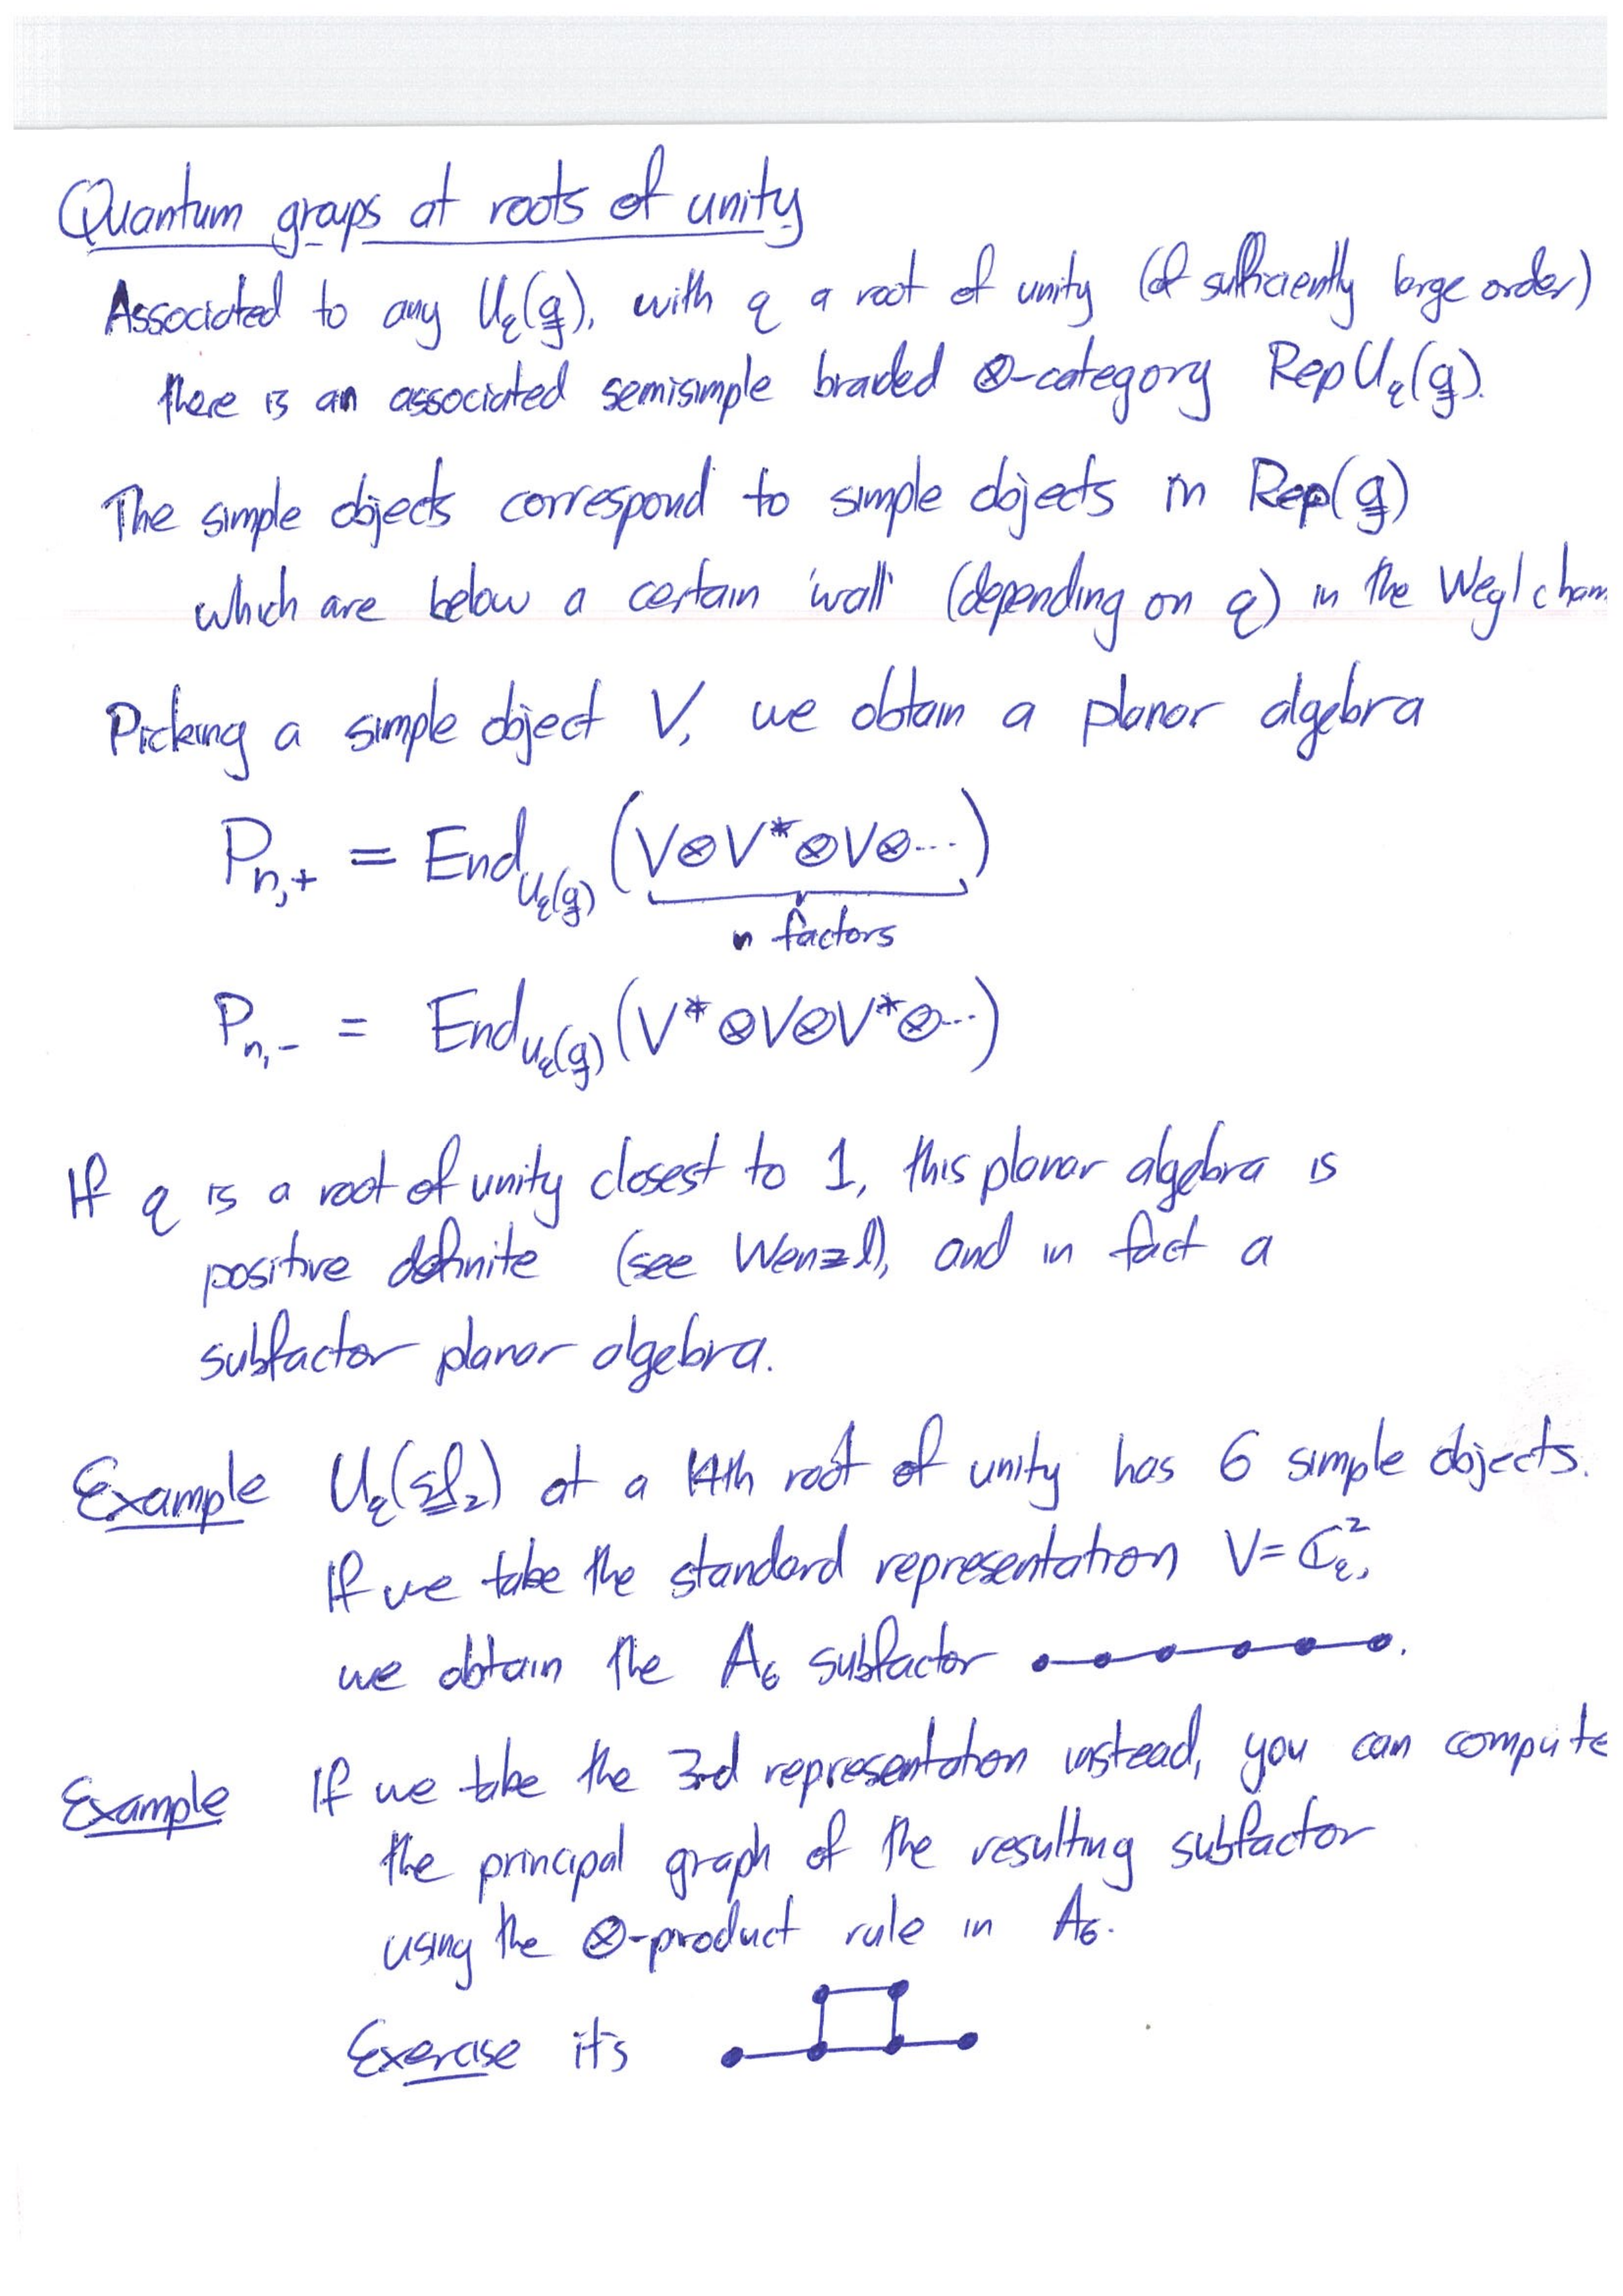 Quantum groups at roots of unity
Associated to any U_q(g), with q a root of unity (of sufficiently large order)
there is an associated semisimple braided ⊗-category Rep U_q(g).
The simple objects correspond to simple objects in Rep(g)
which are below a certain 'wall' (depending on q) in the Weyl cham
Picking a simple object V, we obtain a planar algebra
P_{n,+} = End_{U_q(g)} (V⊗V*⊗V⊗...)
n factors
P_{n,-} = End_{U_q(g)} (V*⊗V⊗V*⊗...)
If q is a root of unity closest to 1, this planar algebra is
positive definite (see Wenzl), and in fact a
subfactor planar algebra.
Example U_q(sl_2) at a 14th root of unity has 6 simple objects.
If we take the standard representation V = ℂ_q^2,
we obtain the A_6 subfactor .
Example If we take the 3rd representation instead, you can compute
the principal graph of the resulting subfactor
using the ⊗-product rule in A_6.
Exercise it's